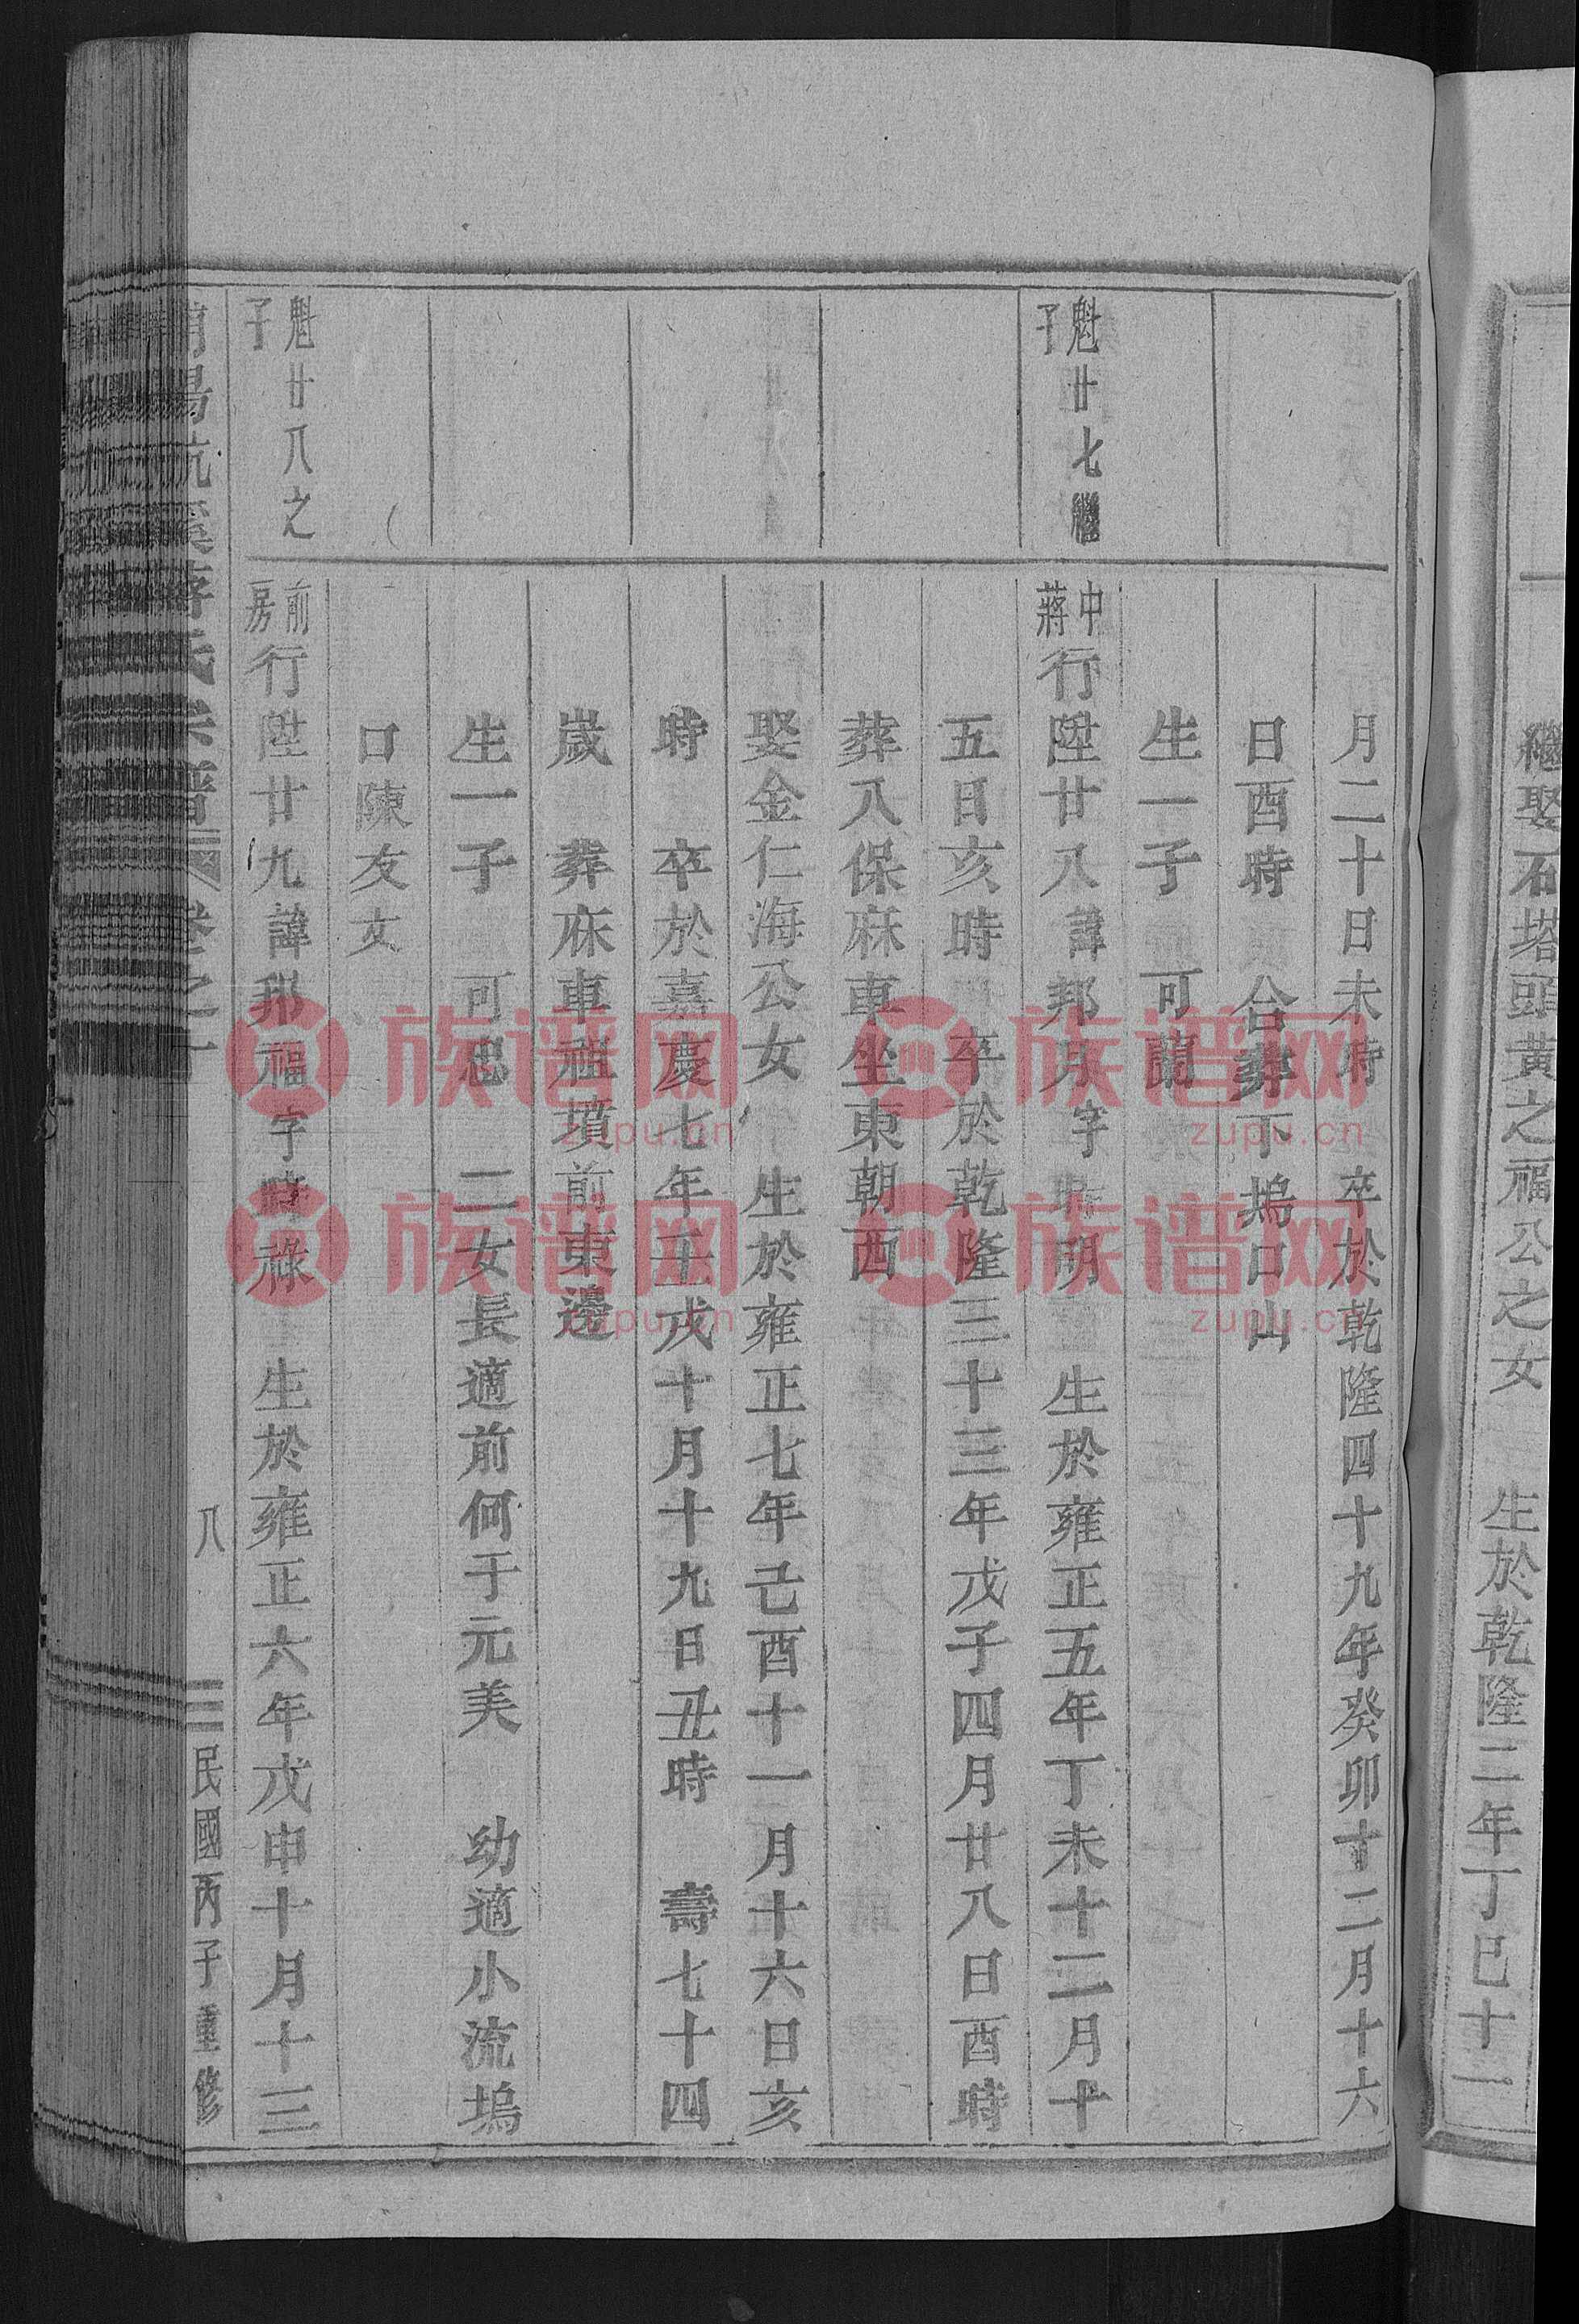 繼娶石塔頭黃之福公之女 生於乾隆二年丁巳十一
月二十日未時 卒於乾隆四十九年癸卯十二月十六
日酉時 合葬下塢口山
生一子 可蘭
魁廿七繼子
中蔣行陞廿八諱邦月字時明 生於雍正五年丁未十二月十
五日亥時 卒於乾隆三十三年戊子四月廿八日酉時
葬八保麻車坐東朝西
娶金仁海公女 生於雍正七年己酉十一月十六日亥
時 卒於嘉慶七年壬戌十月十九日丑時 壽七十四
歲 葬麻車祖墳前東邊
生一子 可忠 二女長適前何于元美 幼適小流塢
口陳友文
魁廿八之子
前房行陞廿九諱邦福字時祿 生於雍正六年戊申十月十三
蔣氏宗譜 卷之一 八 民國丙子重修
族谱网
zupu.cn
族谱网
zupu.cn
族谱网
zupu.cn
族谱网
zupu.cn